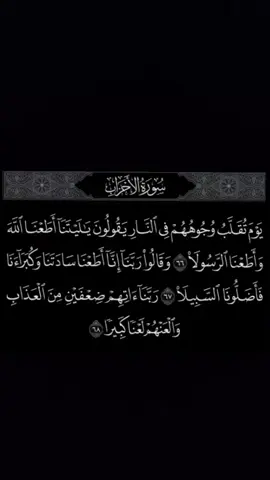 سُورَةُ الْأَحْزَابِ
يَوْمَ تُقَلَّبُ وُجُوهُهُمْ فِي ٱلنَّارِ يَقُولُونَ يَٰلَيْتَنَآ أَطَعْنَا ٱللَّهَ
وَأَطَعْنَا ٱلرَّسُولَا۠ ٦٦ وَقَالُوا۟ رَبَّنَآ إِنَّآ أَطَعْنَا سَادَتَنَا وَكُبَرَآءَنَا
فَأَضَلُّونَا ٱلسَّبِيلَا۠ ٦٧ رَبَّنَآ ءَاتِهِمْ ضِعْفَيْنِ مِنَ ٱلْعَذَابِ
وَٱلْعَنْهُمْ لَعْنًا كَبِيرًا ٦٨